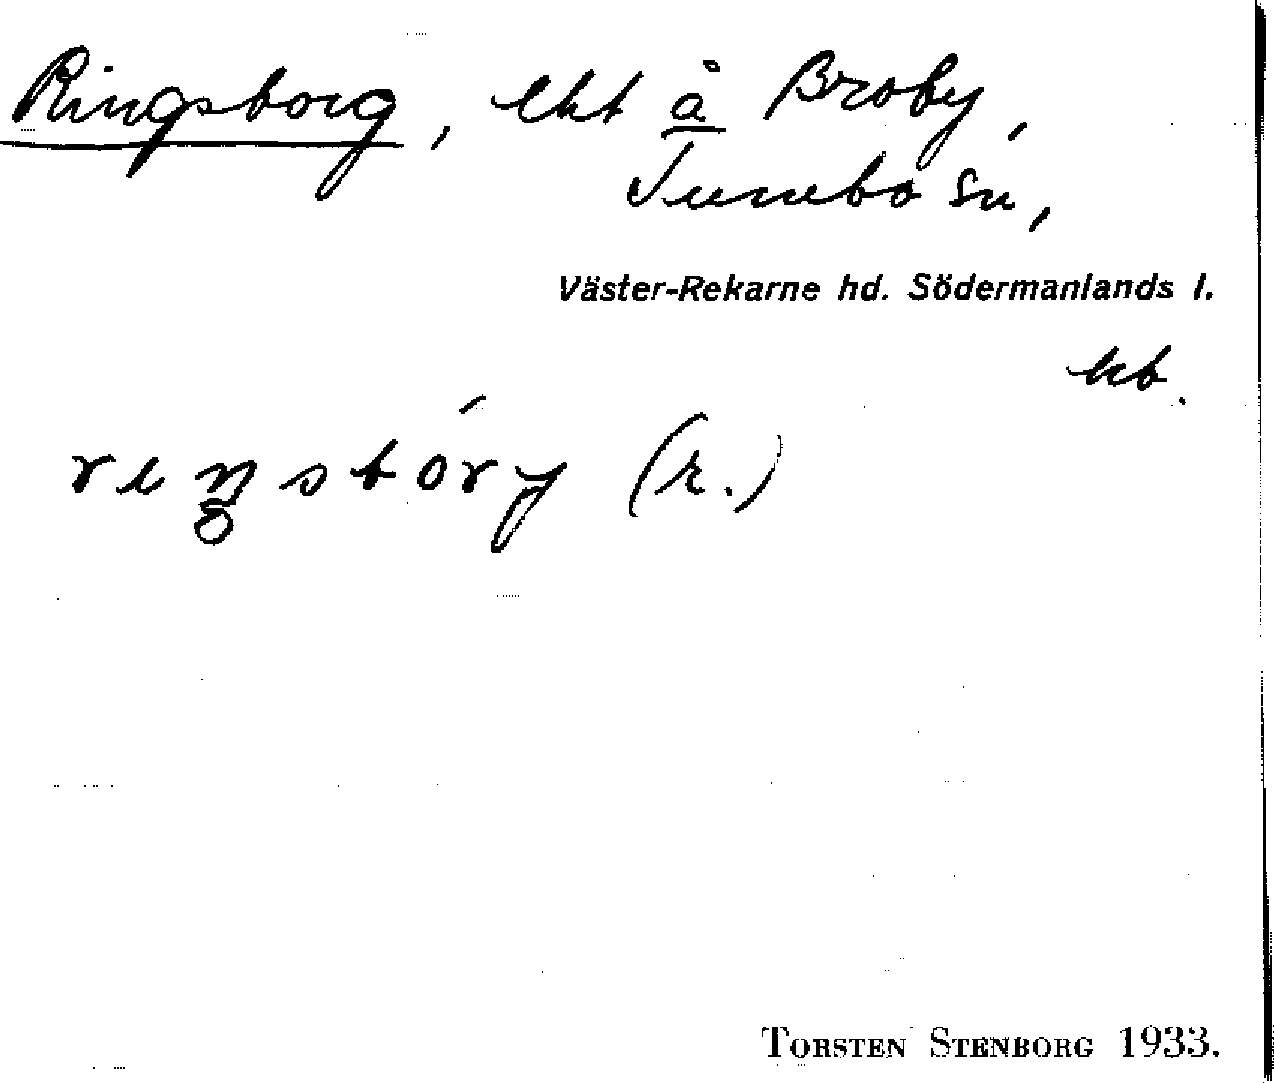 Ringsborg, lht å Broby,
Tumbo sn,
Väster-Rekarne hd. Södermanlands l.
(r.)
TORSTEN STENBORG 1933.